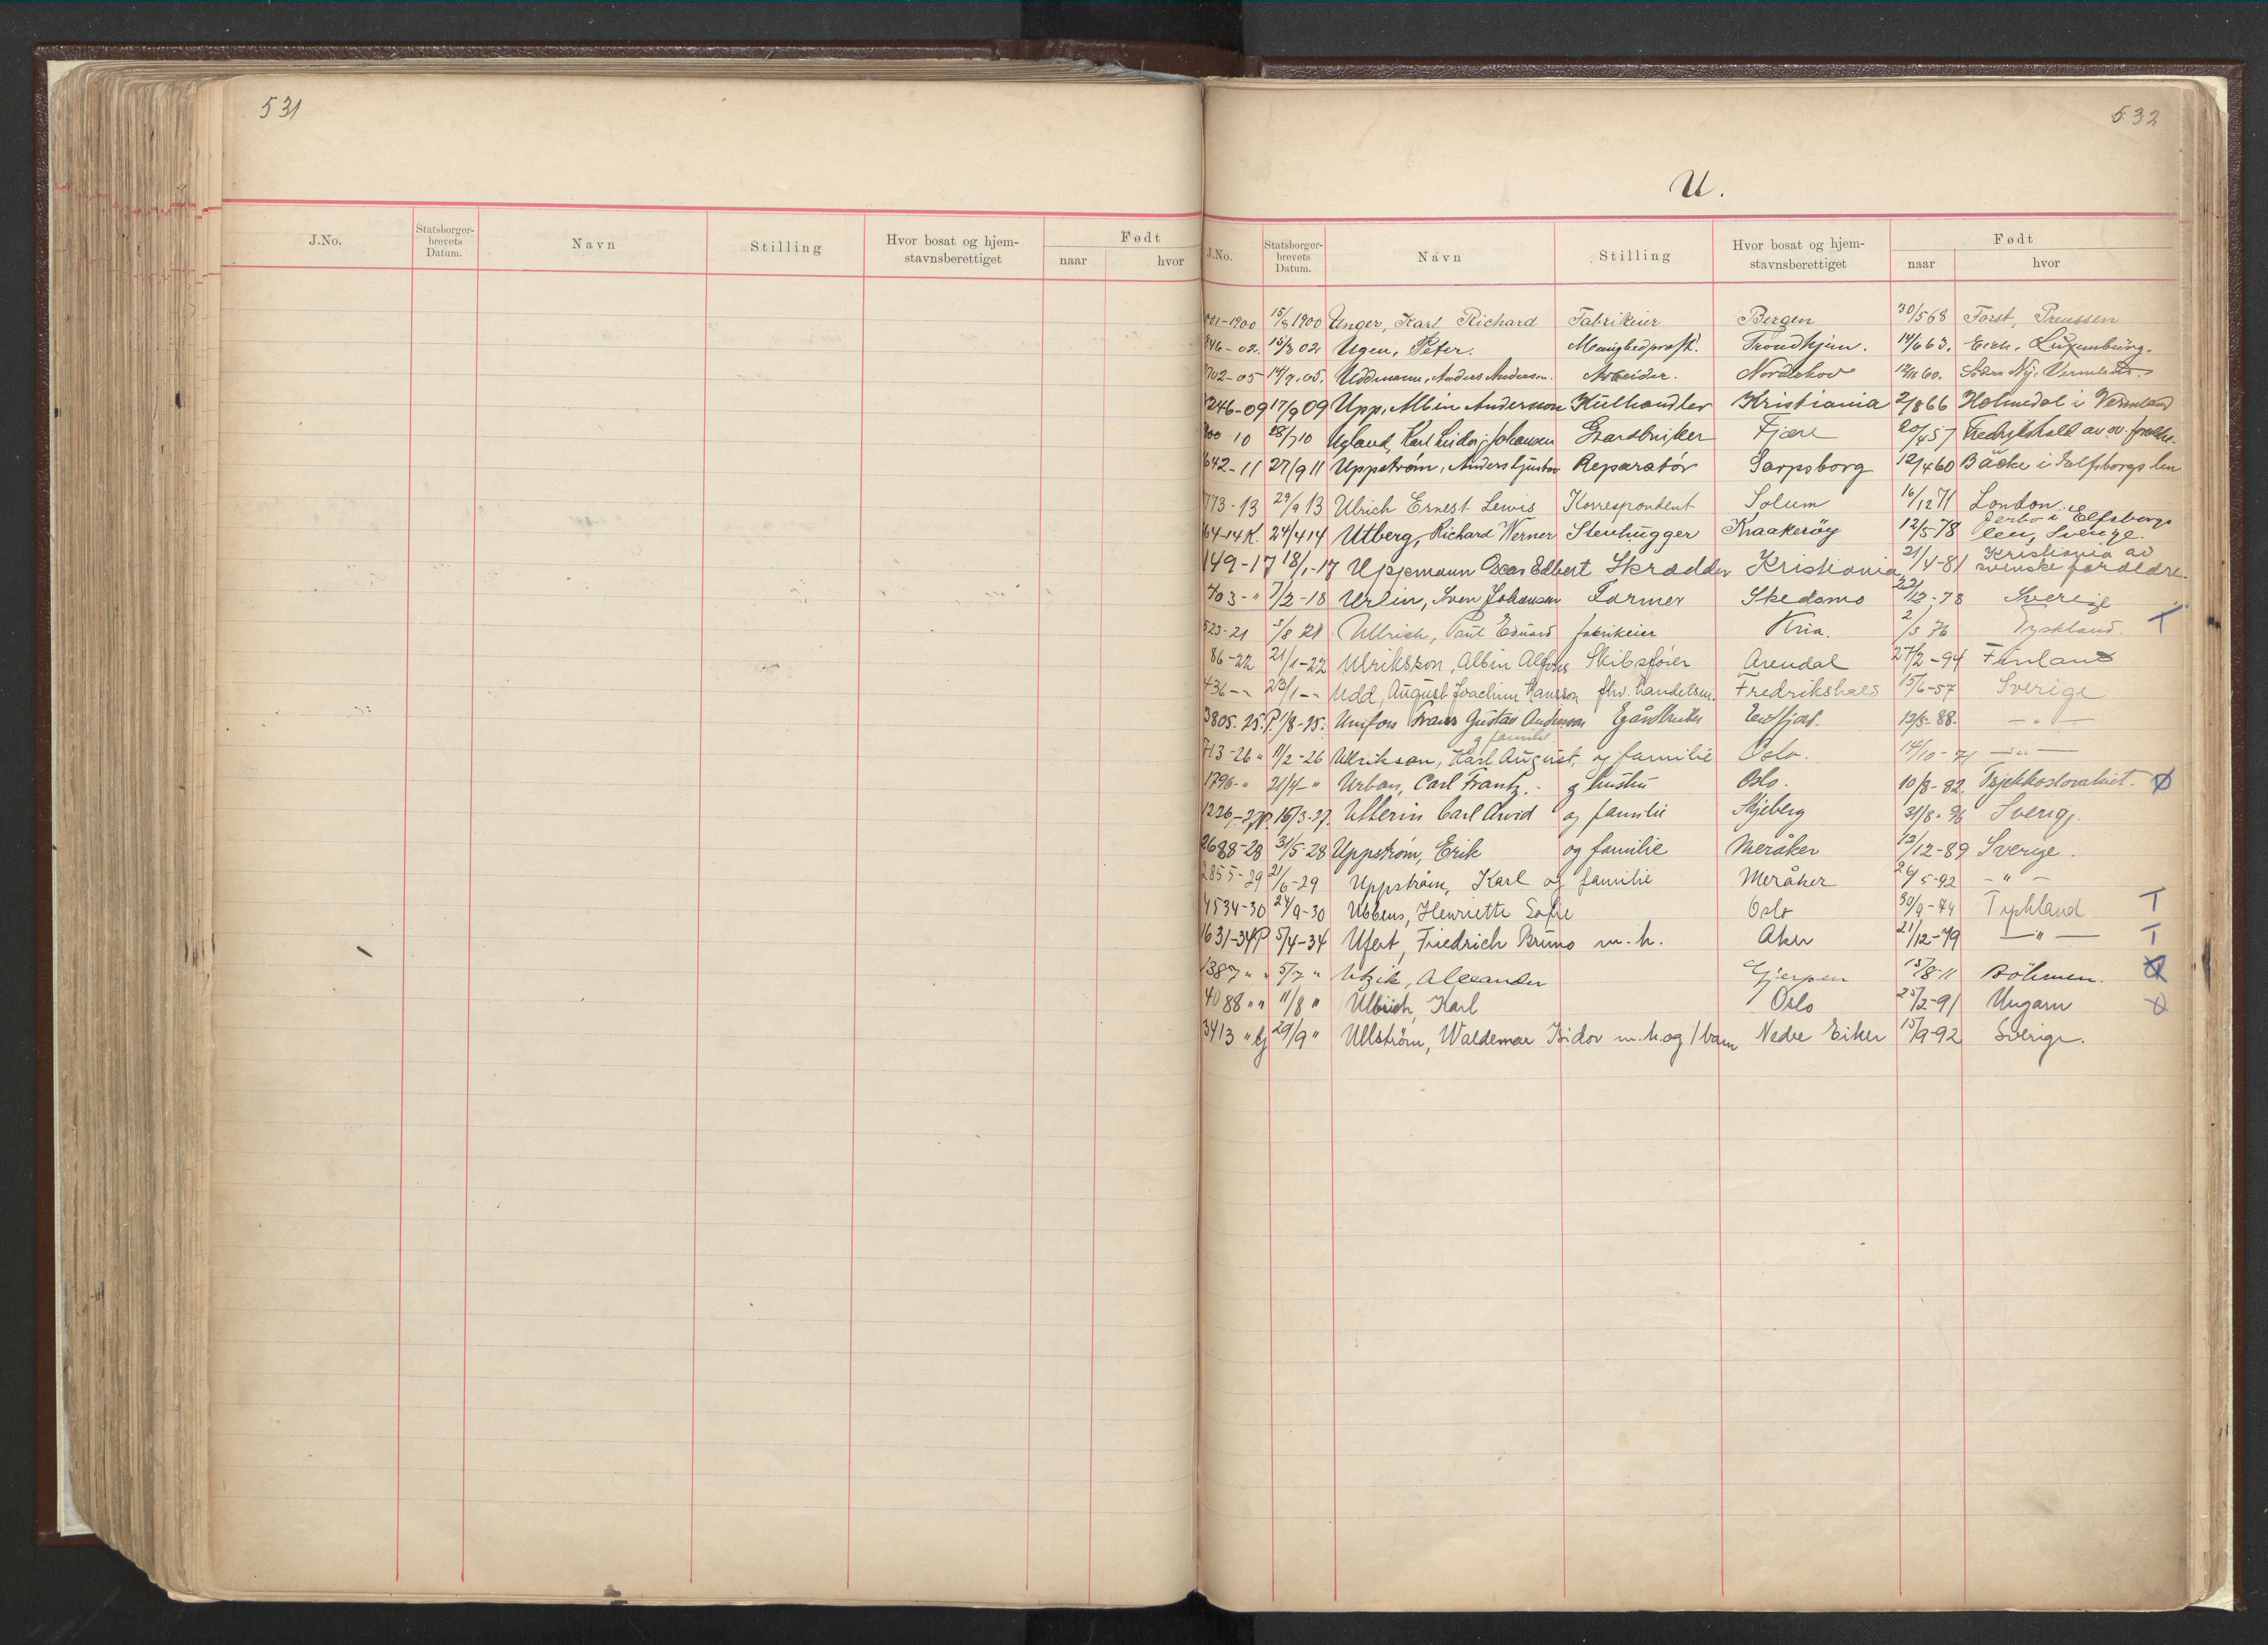 531
J.No.
Statsborger-
brevets
Datum.
Navn
Stilling
Hvor bosat og hjem-
stavnsberettiget
Født
naar
hvor
532
U.
J.No.
Statsborger-
brevets
Datum.
Navn
Stilling
Hvor bosat og hjem-
stavnsberettiget
Født
naar
hvor
01-1900 15/3 1900 Unger, Karl Richard Fabrikeier Bergen 30/5 68 Forst, Preussen
46-02. 15/3 02 Ugen, Peter. Trondhjem. 14/6 63. Luxemburg.
702-05 14/9.05. Uddmann, Anders Anderson. Arbeider. Norderhov 12/11 60. Södra Ny, Vermland.
246-09 17/9 09 Upp, Albin Andersson Kulhandler Kristiania 2/8 66 Holmedal i Vermland
00 10 28/7 10 Ugland, Karl Johansen Gaardbruker Fjære 20/4 57 Fredrikshald av sv. forældre.
642-11 27/9 11 Uppström, Anders Reparatør Sarpsborg 12/4 60 Bäcke i Elfsborgs len
773-13 29/9 13 Ulrich Ernest Lewis Korrespondent Solum 16/12 71 London.
64-14 K. 24/4 14 Utberg, Richard Werner Stenhugger Kraakerøy 12/5 78 i Elfsborgs
len, Sverige.
149-17 18/1-17 Uppmann Oscar Edbert Skrædder Kristiania 21/4-81 Kristiania av
svenske forældre.
403-" 7/2-18 Urlin, Sven Johansen Farmer Skedsmo 22/12-78 Sverige
523-21 5/8 21 Ullrich, Paul Eduard fabrikeier Kria. 2/3 76 Tyskland. T
86-22 21/1-22 Ulriksson, Albin Alfons Skibsfører Arendal 27/2-94 Finland
436-" 23/1-" Udd, August Joachim Hansson fhv. handelsm. Fredrikshald 15/6-57 Sverige
3805.25.P. 1/8-25. Unifors Frans Gustav Anderson Gårdbruker 12/5-88. -"-
og familie
713-26 " 11/2-26 Ullrikson, Karl August, og familie Oslo. 14/10-71 -"-
1796-" 21/4-" Urban, Carl Frantz. og hustru Oslo. 10/8-82. Tsjekkoslovakiet.
1226-27P. 15/3-27. Utterin Carl Arvid og familie Skjeberg 31/8-96 Sverige.
2688-28 31/5-28 Uppström, Erik og familie Meråker 12/12-89 Sverige.
2855-29 21/6-29 Uppström, Karl og familie Meråker 26/5-92 -"-
4534-30 24/9-30 Ubbens, Henriette Sofie Oslo 30/9-74 Tyskland T
1631-34P 5/4-34 Ufert, Friedrich Bruno m.h. Aker 21/12-79 -"- T
1387 " " 5/7 " Utzik, Alexander Gjerpen 15/8-11 Böhmen.
4088 " " 11/8 " Ulbrich, Karl Oslo 25/2-91 Ungarn
3413 " G 29/9 " Ullström, Waldemar Isidor m.h.og 1 barn Nedre Eiker 15/9-92 Sverige.